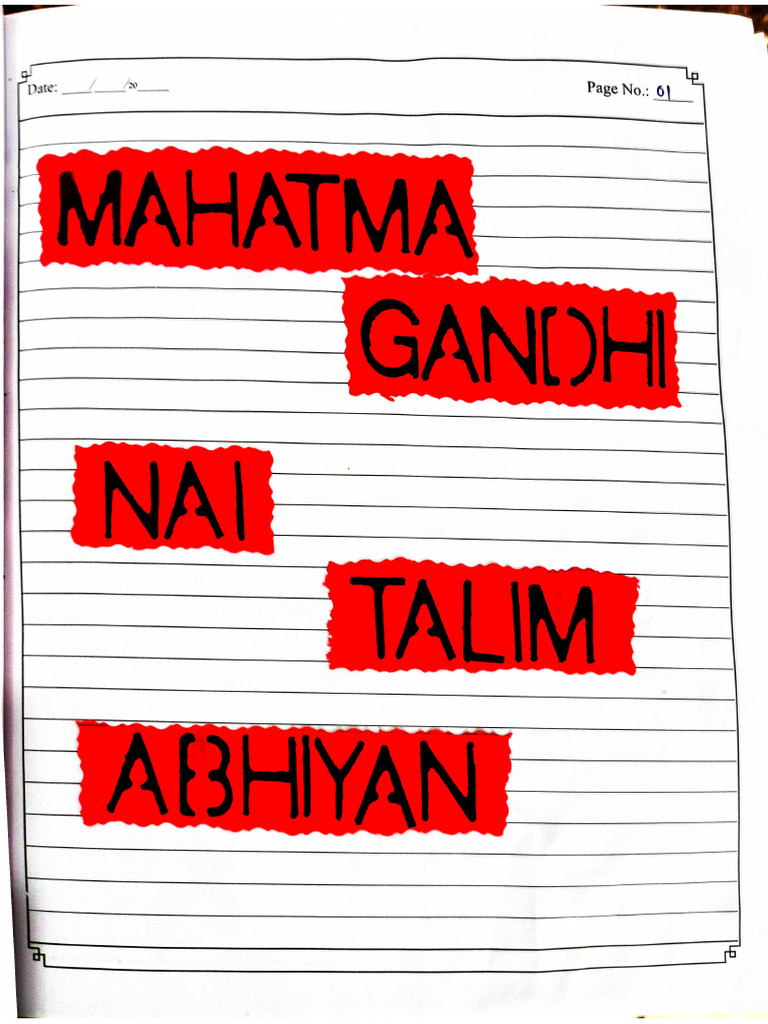 Date: ___/___/20___ Page No.: 01
MAHATMA
GANDHI
NAI
TALIM
ABHIYAN